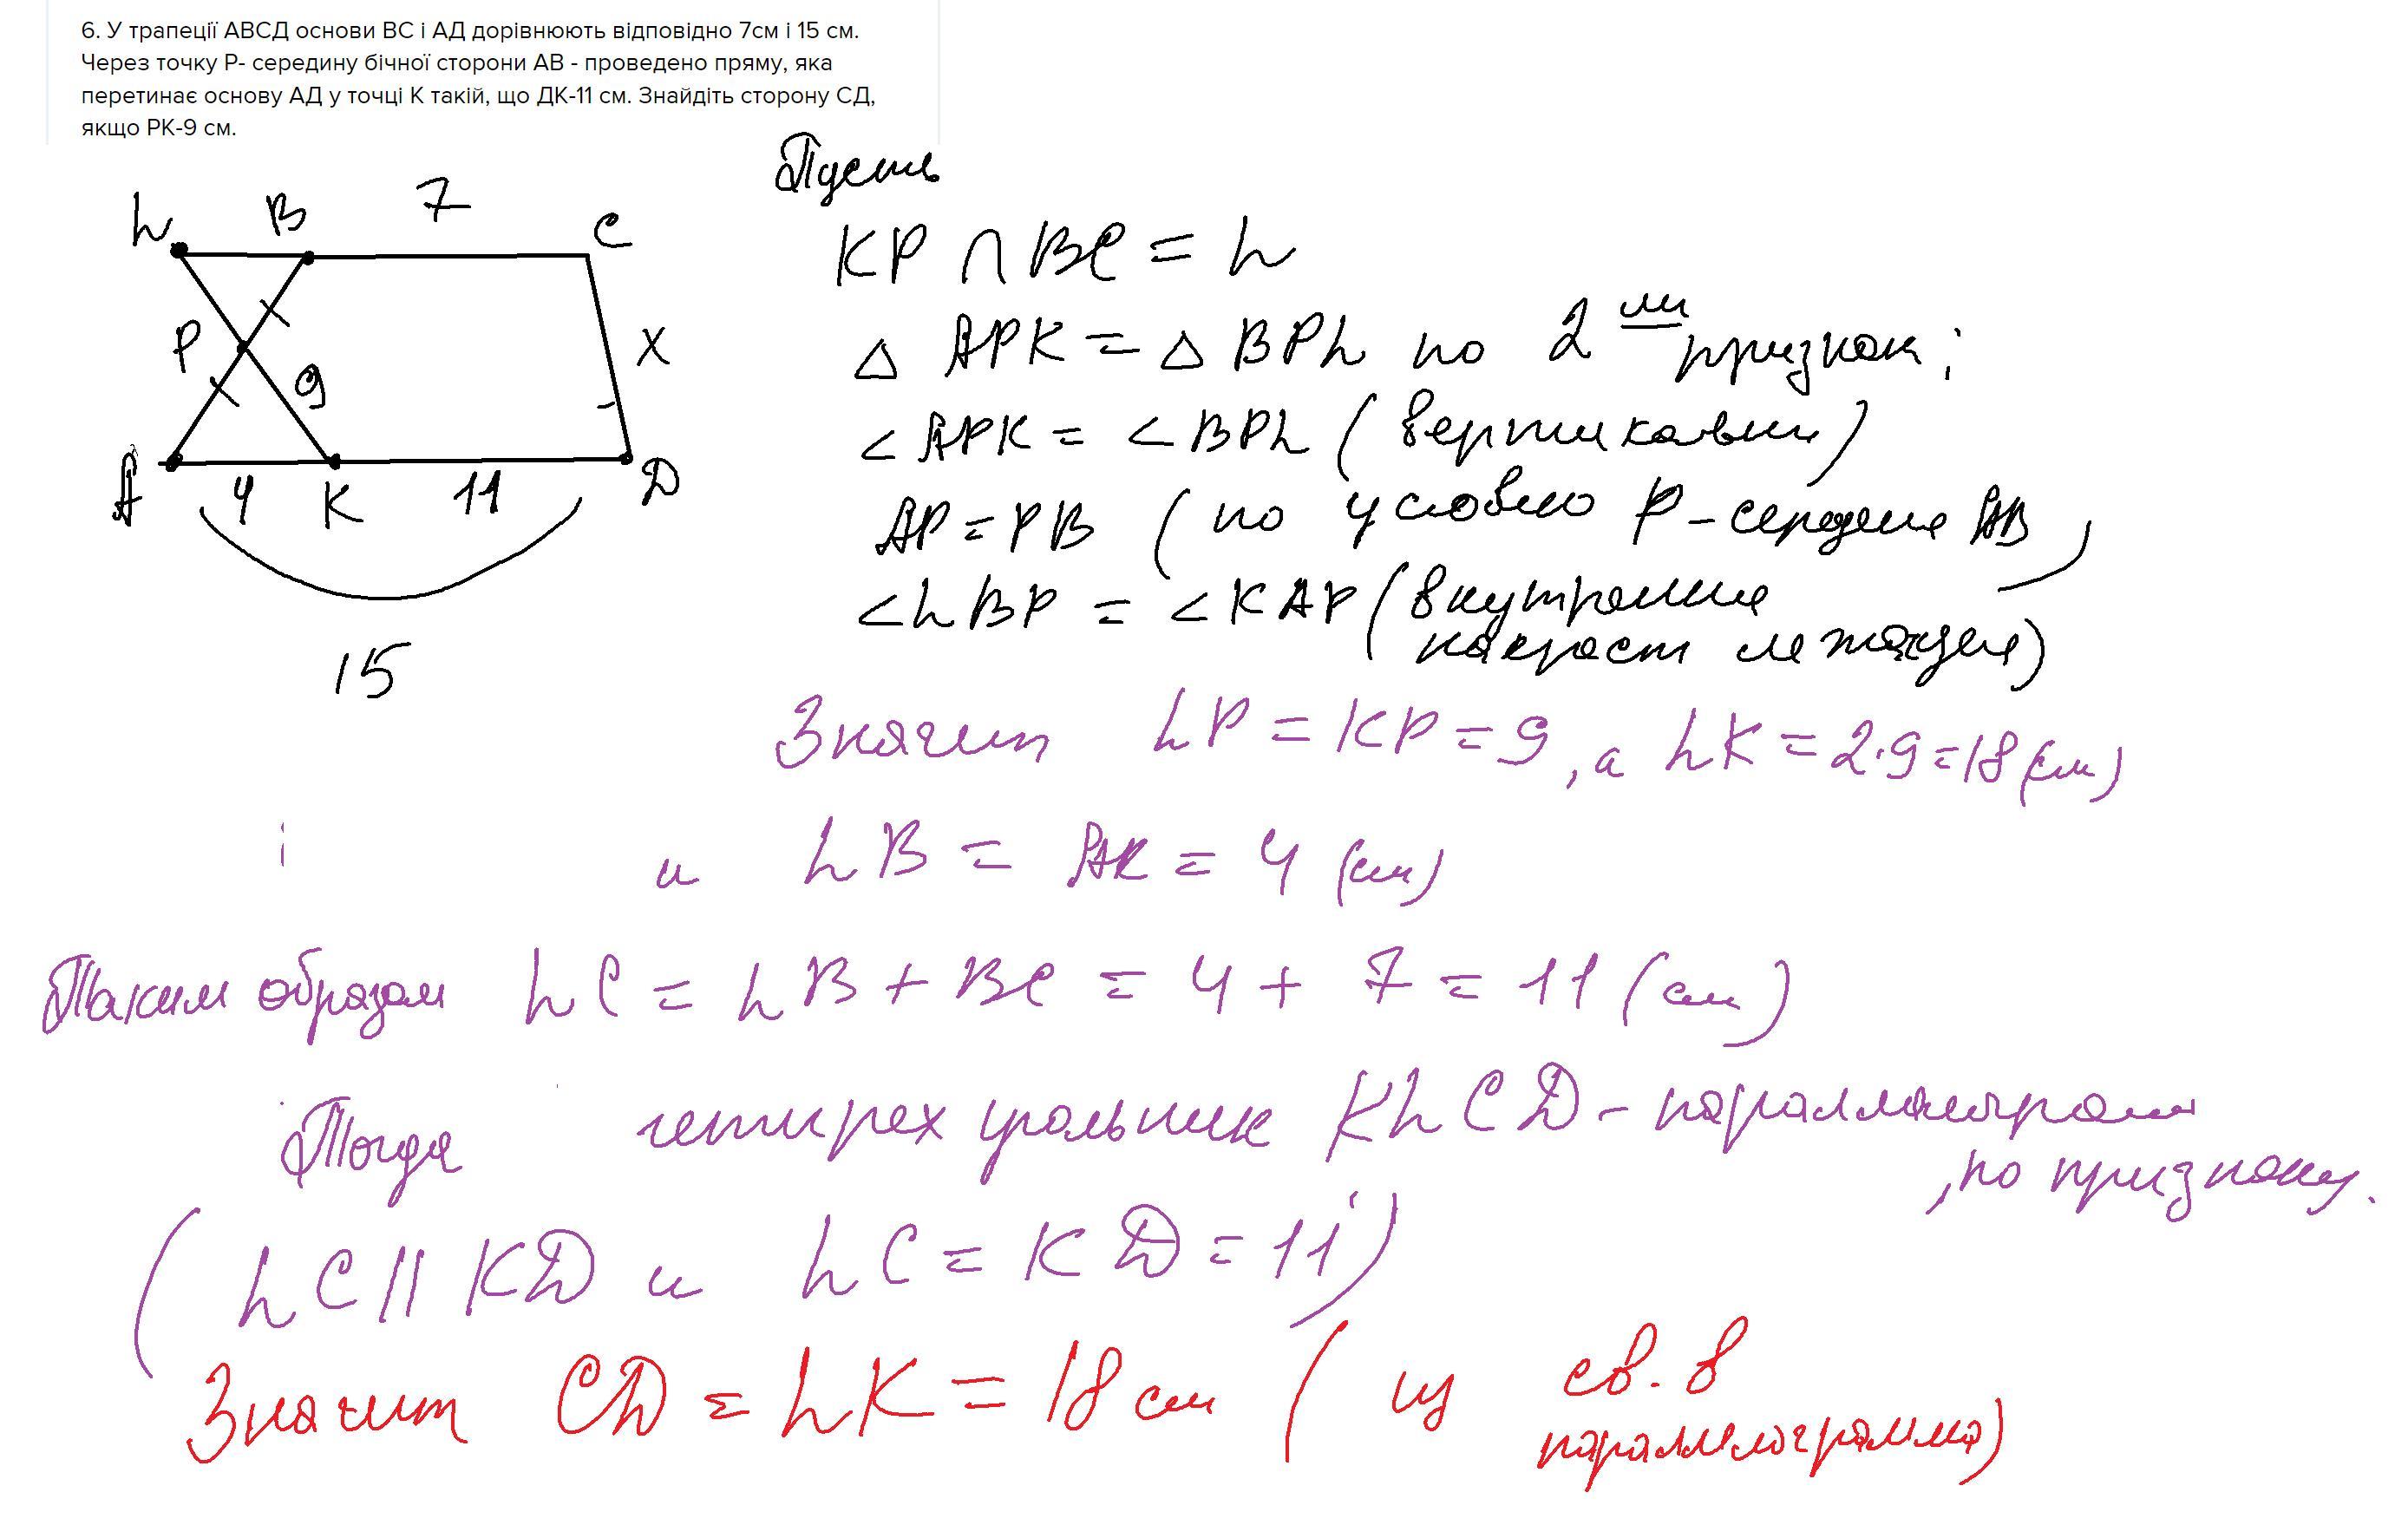 6. У трапеції АВСД основи ВС і АД дорівнюють відповідно 7см і 15 см.
Через точку Р- середину бічної сторони АВ - проведено пряму, яка
перетинає основу АД у точці К такій, що ДК-11 см. Знайдіть сторону СД,
якщо РК-9 см.
Пусть
L B 7 C
KP ∩ BC = L
P 9 X
△ APK = △ BPL по 2 ми признак:
∠APK = ∠BPL (вертикальни)
A 4 K 11 D
AP = PB (по условию P - середина AB)
∠LBP = ∠KAP (внутренние
накрест лежащие)
15
Значит LP = KP = 9, а LK = 2·9 = 18 (см)
и LB = AK = 4 (см)
Таким образом LC = LB + BC = 4 + 7 = 11 (см)
Тогда четирех угольник KLCD - параллелограмм
, по признаку.
(LC || KD и LC = KD = 11)
Значит CD = LK = 18 см (из св. в
параллелограмма)